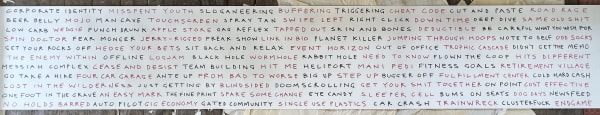 CORPORATE IDENTITY MISSPENT YOUTH SLOGANEERING BUFFERING TRIGGERING CHEAT CODE CUT AND PASTE ROAD RAGE
BEER BELLY MOJO MAN CAVE TOUCHSCREEN SPRAY TAN SWIPE LEFT RIGHT CLICK DOWN TIME DEEP DIVE SAME OLD SHIT
LOW CARB WEDGIE PUNCH DRUNK APPLE STORE GAG REFLEX TAPPED OUT SKIN AND BONES DEDUCTIBLE BE CAREFUL WHAT YOU WISH FOR
SPIN DOCTOR PEAK PIONEER JERRY-RIGGED FREAK SHOW LINK IN BIO PLANET KILLER JUMPING THROUGH HOOPS NOTE TO SELF ODD SOCKS
GET YOUR ROCKS OFF HEDGE YOUR BETS SIT BACK AND RELAX EVENT HORIZON OUT OF OFFICE TROPHIC CASCADE DIDN'T GET THE MEMO
THE ENEMY WITHIN OFFLINE LOGAN BLACK HOLE WORMHOLE RABBIT HOLE NEED TO KNOW FLOW IN THE COOP HITS DIFFERENT
MESSIAH COMPLEX CEASE AND DESIST TEAM BUILDING HIT ME HELIPORT MANI PEDI FITNESS GOALS RETIREMENT VILLAGE
GO TAKE A HIKE FOUR CAR GARAGE ANTE UP FROM BAD TO WORSE BIG UP STEP UP BUGGER OFF FULFILLMENT CENTER COLD HARD CASH
LOST IN THE WILDERNESS JUST GETTING BY BLINDSIDED DOOMSCROLLING GET YOUR SHIT TOGETHER ON POINT COST EFFECTIVE
ONE FOOT IN THE GRAVE AN EASY MARK THE FINE PRINT SPARE SOME CHANGE EYE CANDY SLEEPER CELL BUMS ON SEATS DOG DAYS NEWSFEED
NO HOLDS BARRED AUTO PILOT GIG ECONOMY GATED COMMUNITY SINGLE USE PLASTICS CAR CRASH TRAINWRECK CLUSTERFUCK ENDGAME